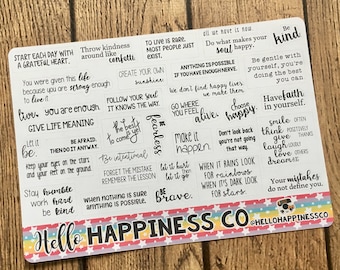 START EACH DAY WITH
A GRATEFUL HEART.
Throw kindness
around like
confetti
TO LIVE IS RARE.
MOST PEOPLE JUST
EXIST.
All we have is now
Do what makes your
soul happy.
Be
kind
You were given this life
because you are strong enough
to live it.
CREATE YOUR OWN
sunshine
ANYTHING IS POSSIBLE
IF YOU HAVE ENOUGH NERVE.
Be gentle with
yourself, you're
doing the best
you can.
you are enough
GIVE LIFE MEANING
FOLLOW YOUR SOUL
IT KNOWS THE WAY.
We don't find happy
we make them.
GO WHERE
YOU FEEL
alive.
choose
happy
Have faith
in yourself.
Let it
be.
BE AFRAID.
THEN DO IT ANYWAY.
the best
is yet
to come!
BE
fearless
make it
happen
Don't look back
you're not going
that way.
smile often
think positive
give thanks
laugh loudly
love others
dream big
keep your eyes on the stars
and your feet on the ground
Be intentional
FORGET THE MISTAKE
REMEMBER THE LESSON
let it hurt
then let it go
WHEN IT RAINS LOOK
for rainbows
WHEN IT'S DARK LOOK
FOR stars
Stay humble
work hard
be kind
WHEN NOTHING IS SURE,
ANYTHING IS POSSIBLE.
BE
brave.
Your mistakes
do not define you.
Hello HAPPINESS CO
@HELLOHAPPINESSCO